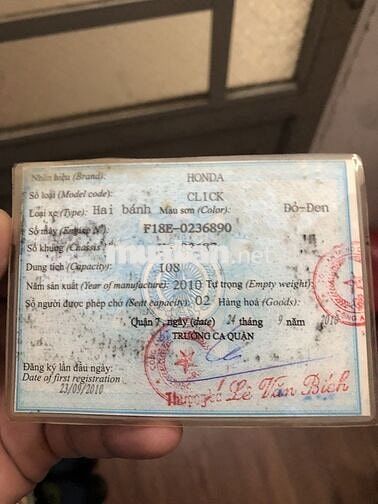 Nhãn hiệu (Brand): HONDA
Số loại (Model code): CLICK
Loại xe (Type): Hai bánh Màu sơn (Color): Đỏ-Đen
Số máy (Engine N°): F18E-0236890
Số khung (Chassis
muaban.net
Dung tích (Capacity): 108
Năm sản xuất (Year of manufacture): 2010 Tự trọng (Empty weight):
Số người được phép chở (Seat capacity): 02 Hàng hoá (Goods):
Quận 7, ngày (date) 24 tháng 9 năm 2010
TRƯỞNG CA QUẬN
Đăng ký lần đầu ngày:
Date of first registration
23/09/2010
Thượng tá Lê Văn Bích